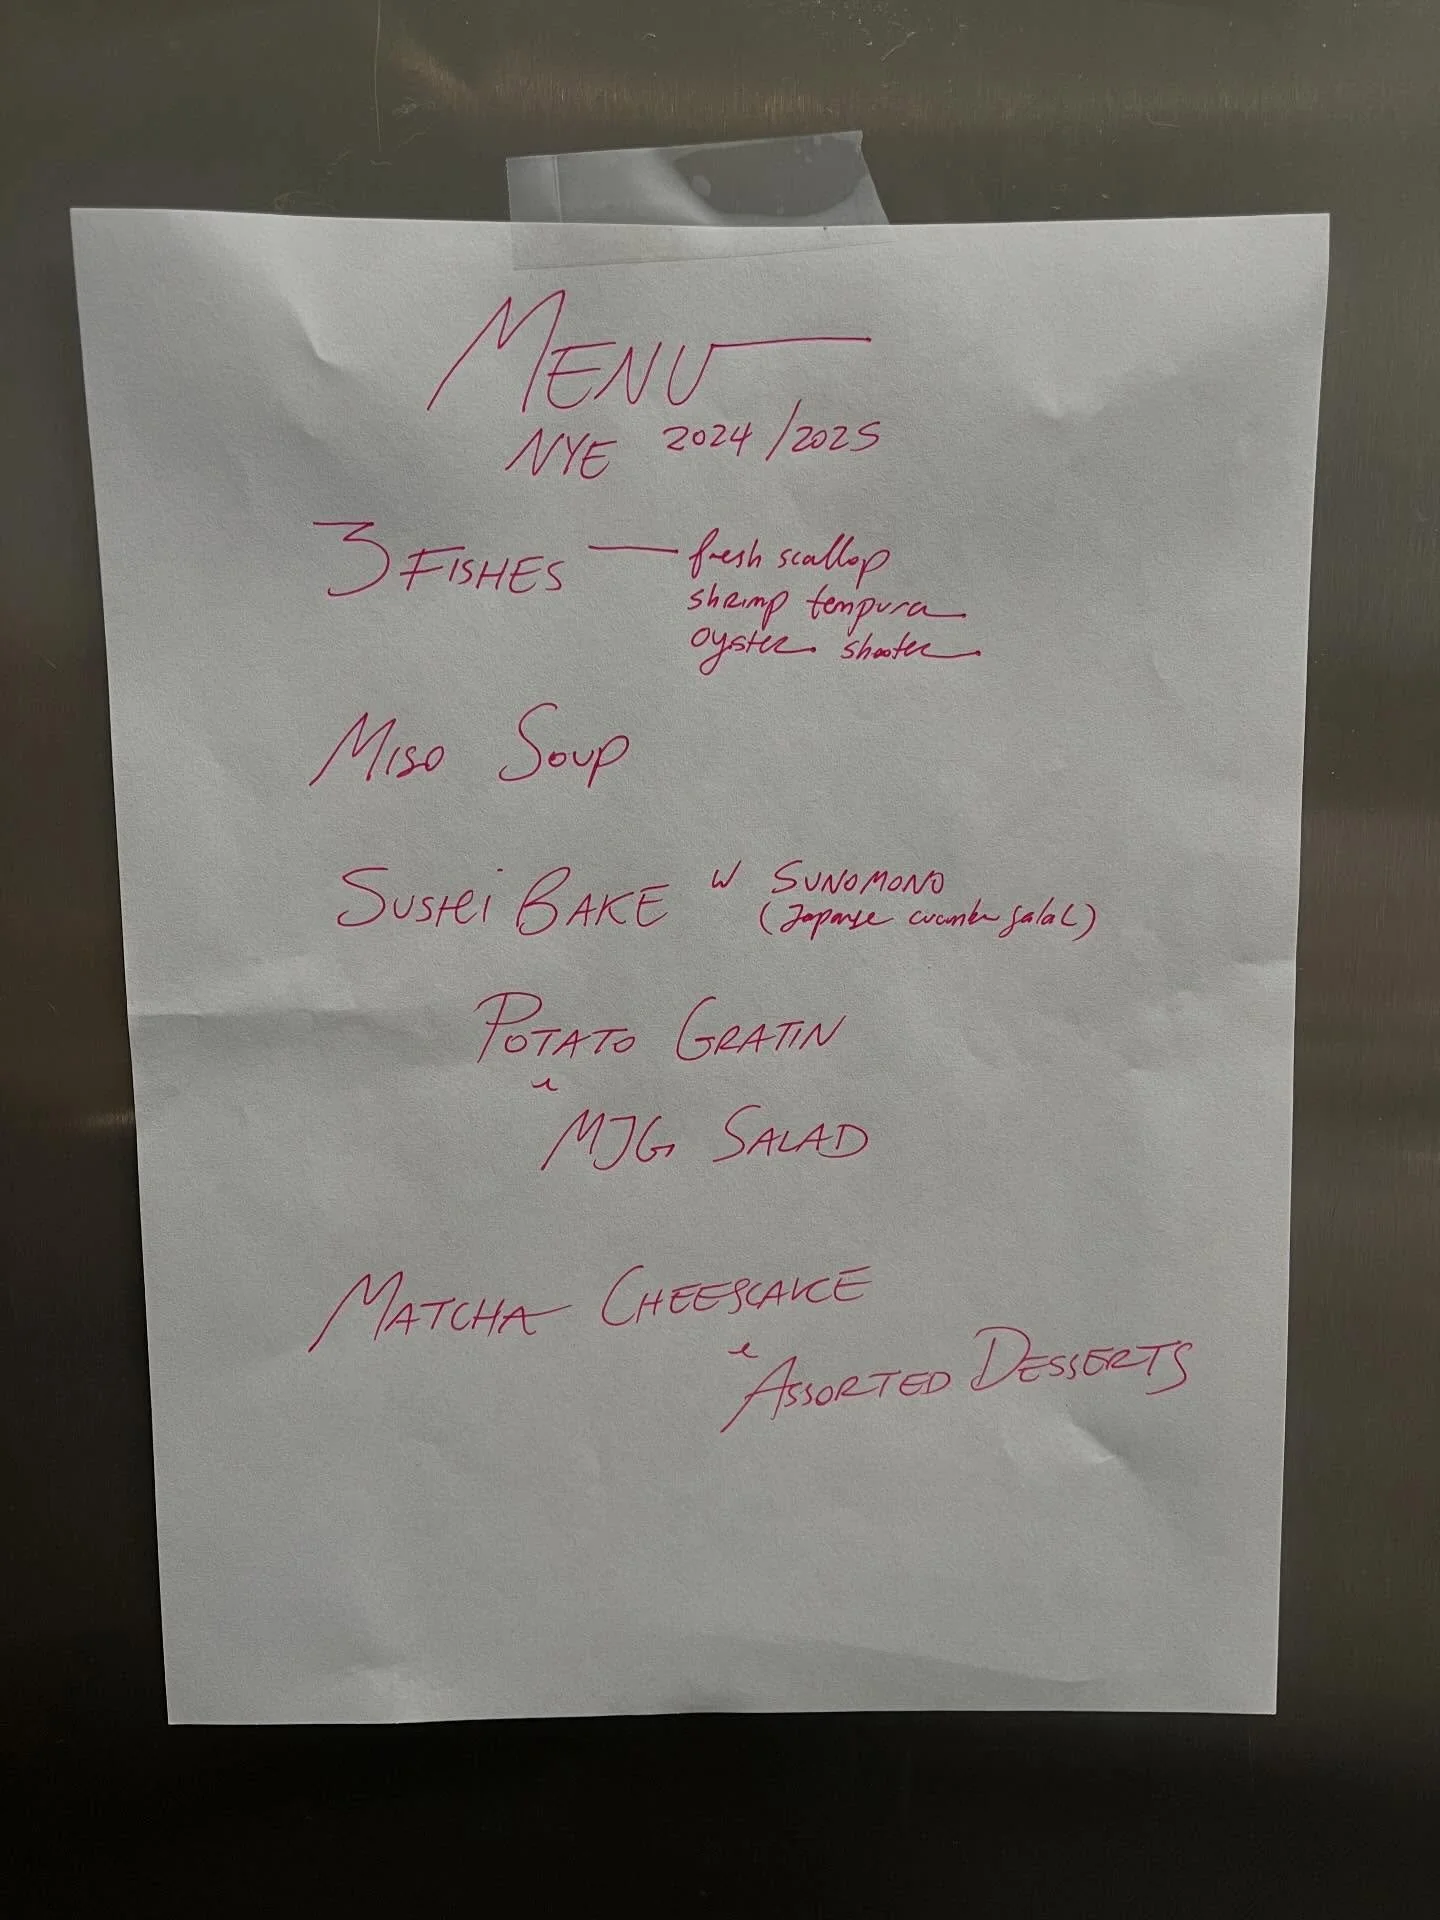 MENU
NYE 2024/2025
3 FISHES — fresh scallop
shrimp tempura
oyster shooter
MISO SOUP
SUSHI BAKE w SUNOMONO
(Japanese cucumber salad)
POTATO GRATIN
&
MJG SALAD
MATCHA CHEESECAKE
&
ASSORTED DESSERTS